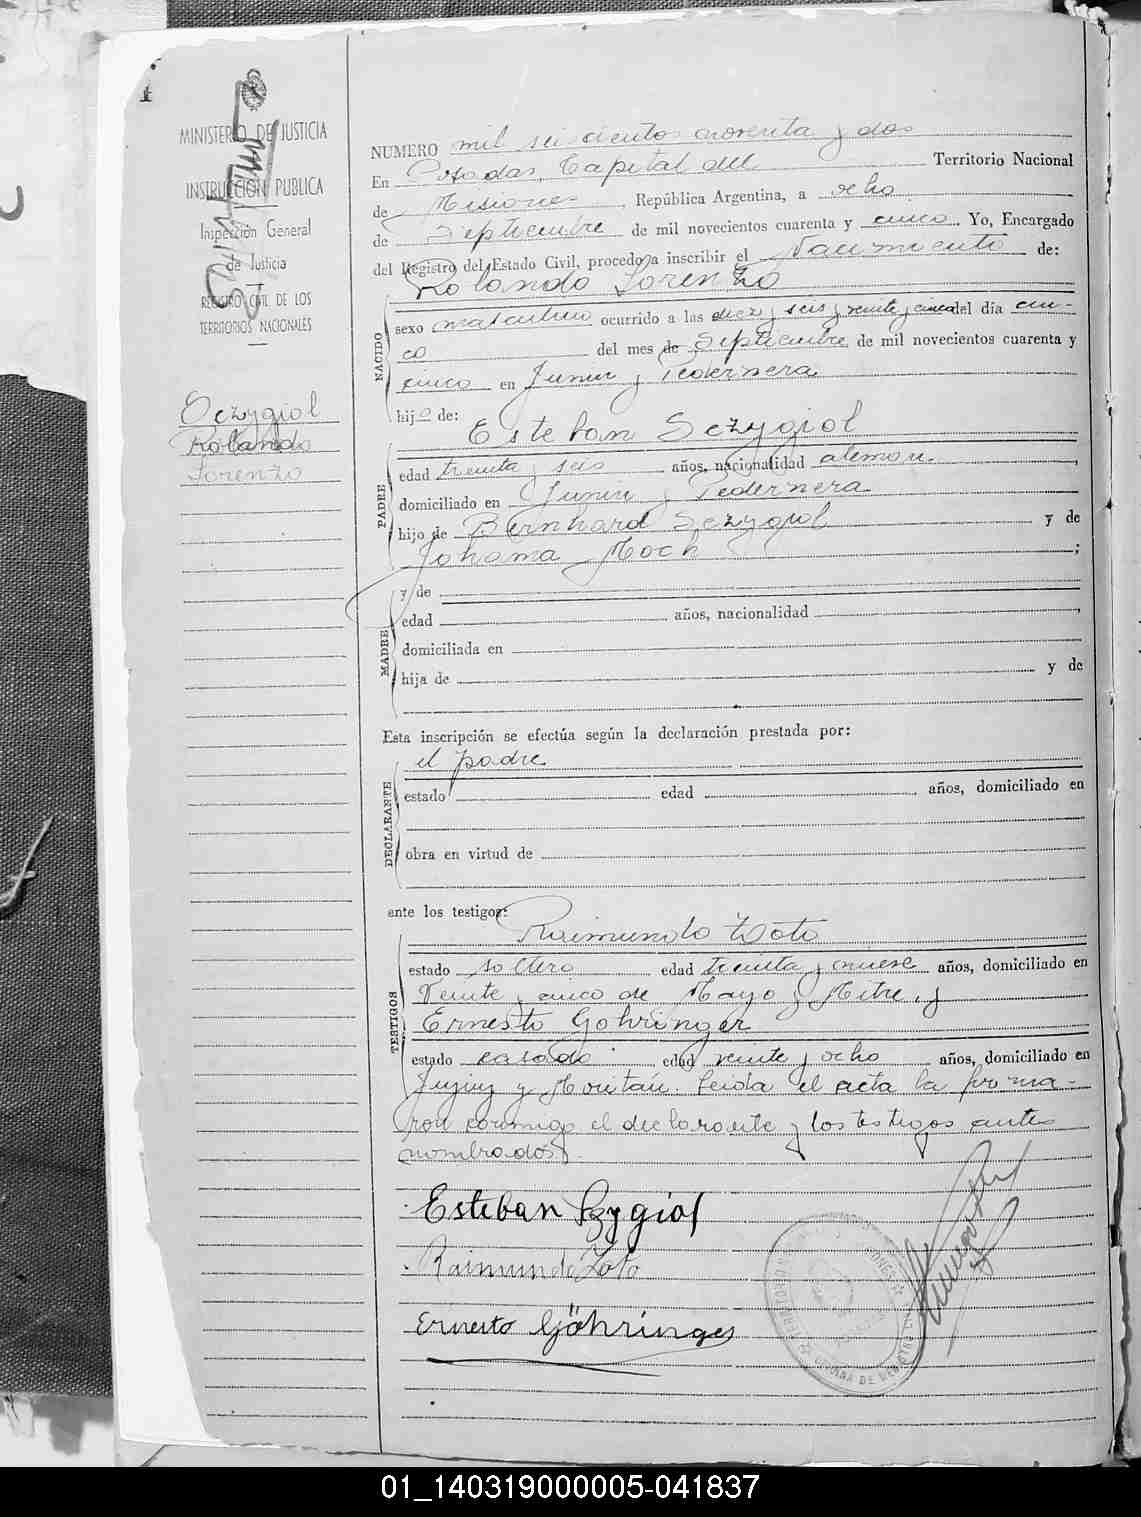 MINISTERIO DE JUSTICIA
INSTRUCCIÓN PUBLICA
Inspección General
de Justicia
REGISTRO CIVIL DE LOS
TERRITORIOS NACIONALES
Sczygiol
Rolando
Lorenzo
NUMERO mil seiscientos noventa y dos
En Posadas, Capital del Territorio Nacional
de Misiones, República Argentina, a ocho
de Septiembre de mil novecientos cuarenta y cinco. Yo, Encargado
del Registro del Estado Civil, procedo a inscribir el Nacimiento de:
Rolando Lorenzo
NACIDO
sexo masculino ocurrido a las diez y seis y veinte y cinco del día cin-
co del mes de Septiembre de mil novecientos cuarenta y
cinco en Junin y Pedernera
hijo de:
Esteban Sczygiol
PADRE
edad treinta y seis años, nacionalidad aleman.
domiciliado en Junin y Pedernera
hijo de Bernhard Sczygiol y de
Johama Moch;
MADRE
y de
edad años, nacionalidad
domiciliada en
hija de y de
Esta inscripción se efectúa según la declaración prestada por:
el padre
DECLARANTE
estado edad años, domiciliado en
obra en virtud de
ante los testigos:
Raimundo Zoto
TESTIGOS
estado soltero edad treinta y nueve años, domiciliado en
Veinte y cinco de Mayo y Mitre, y
Ernesto Gohringer
estado casado edad veinte y ocho años, domiciliado en
Jujuy y Moritán. Leida el acta la firma-
ron conmigo el declarante y los testigos antes
nombrados.
Esteban Szygiol
Raimundo Zoto
Ernesto Göhringer
01_140319000005-041837